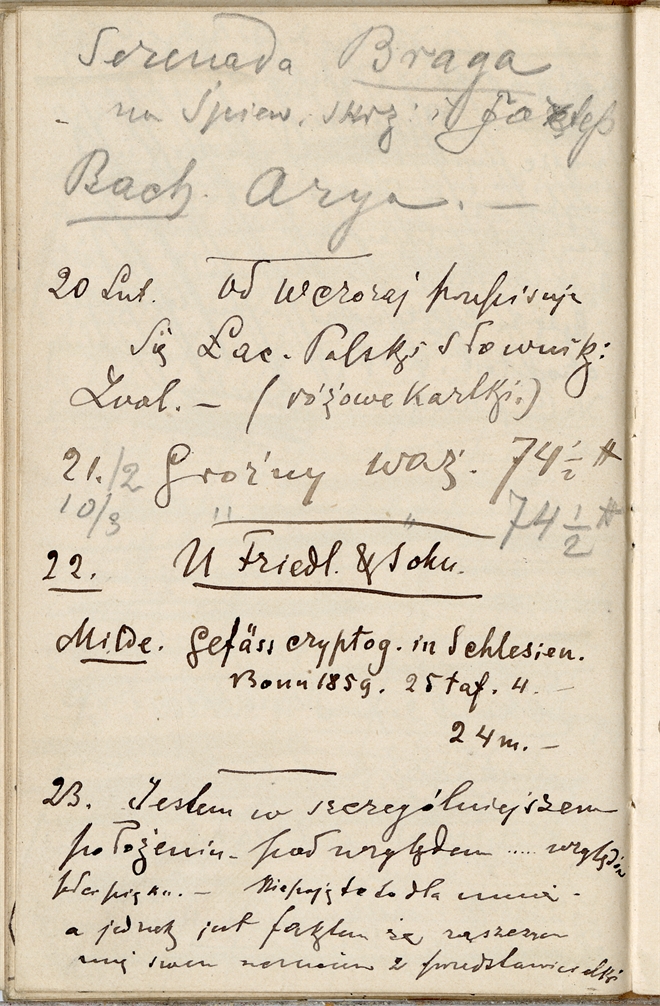 Serenada Braga
na śpiew, skrz: i
Bach. Arya. —
20 Lut. Od wczoraj przepisuję
się Łac. Polski Słownik:
Zool. — (różowe Kartki.)
21./2 Groźny waż. 74 1/2 ℔
10/3 " " 74 1/2 ℔
22. U Friedl. & Sohn.
Milde. Gefäss cryptog. in Schlesien.
Bonn 1859. 25 taf. 4. —
24 m. —
23. Jestem w szczególniejszem
położeniu — pod względem ..... względów
płci pięk. — Niepojęte to dla mnie —
a jednak jest faktem że
mej z przedstawicielki